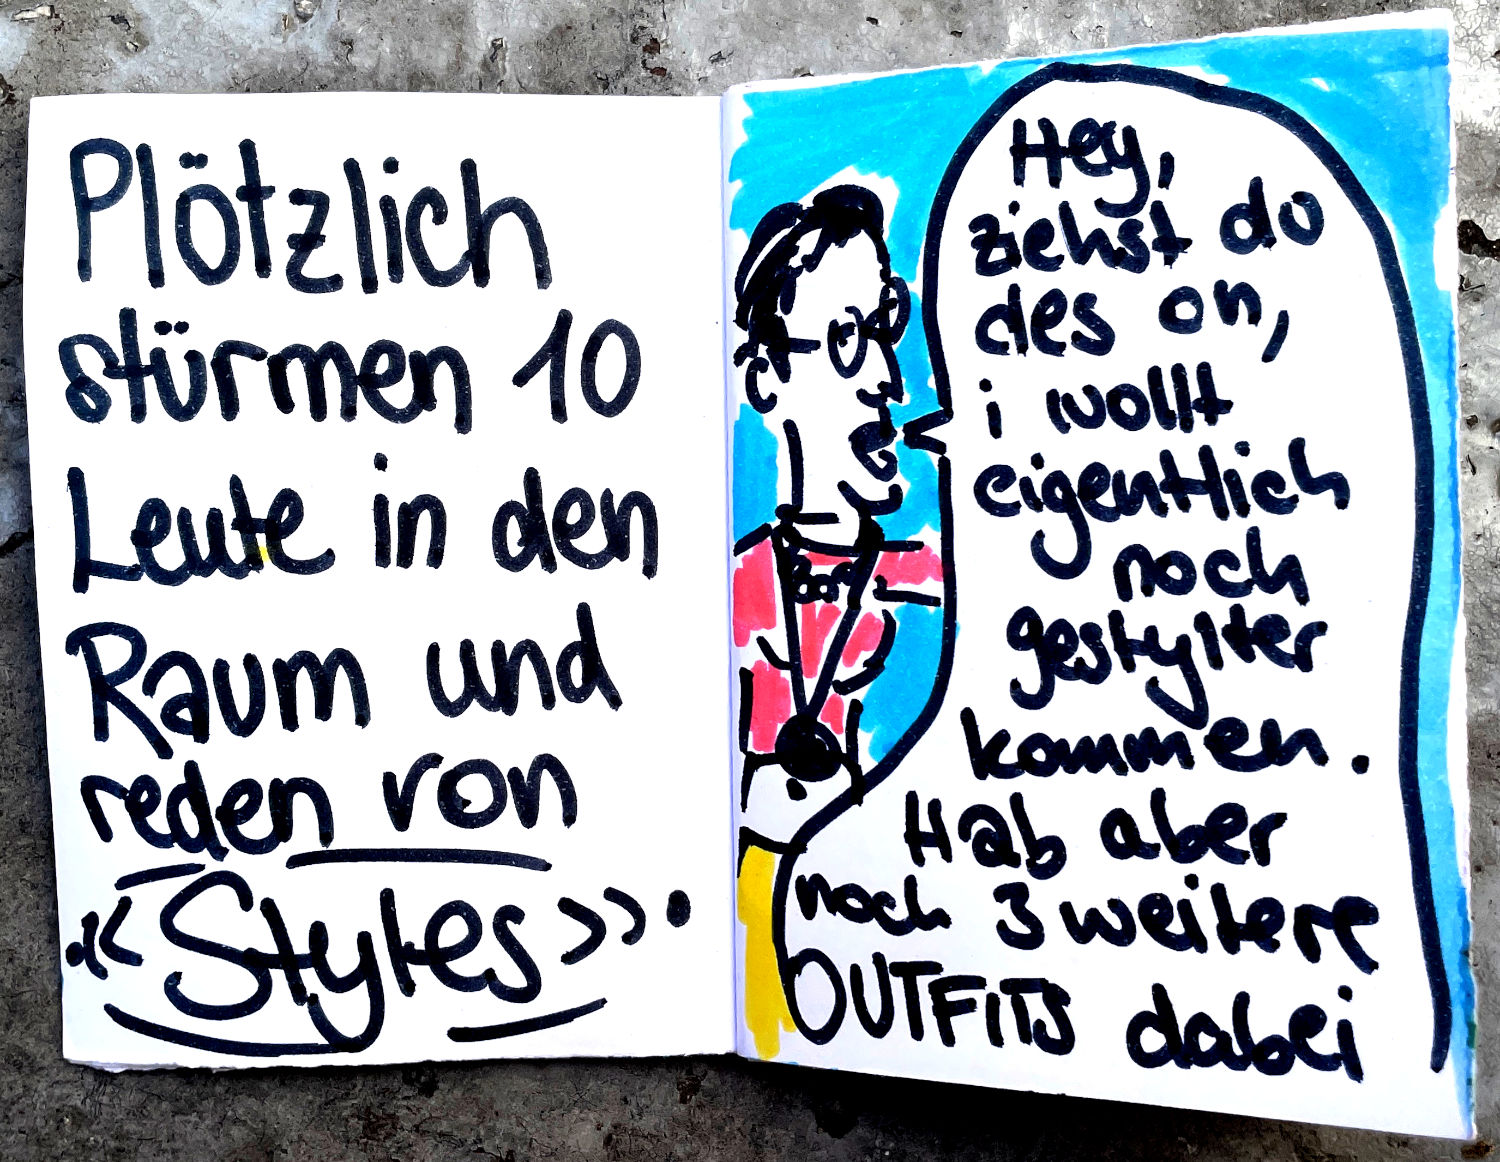 Plötzlich
stürmen 10
Leute in den
Raum und
reden von
«Styles».
Hey,
ziehst du
des on,
i wollt
eigentlich
noch
gestylter
kommen.
Hab aber
noch 3 weitere
OUTFITS dabei